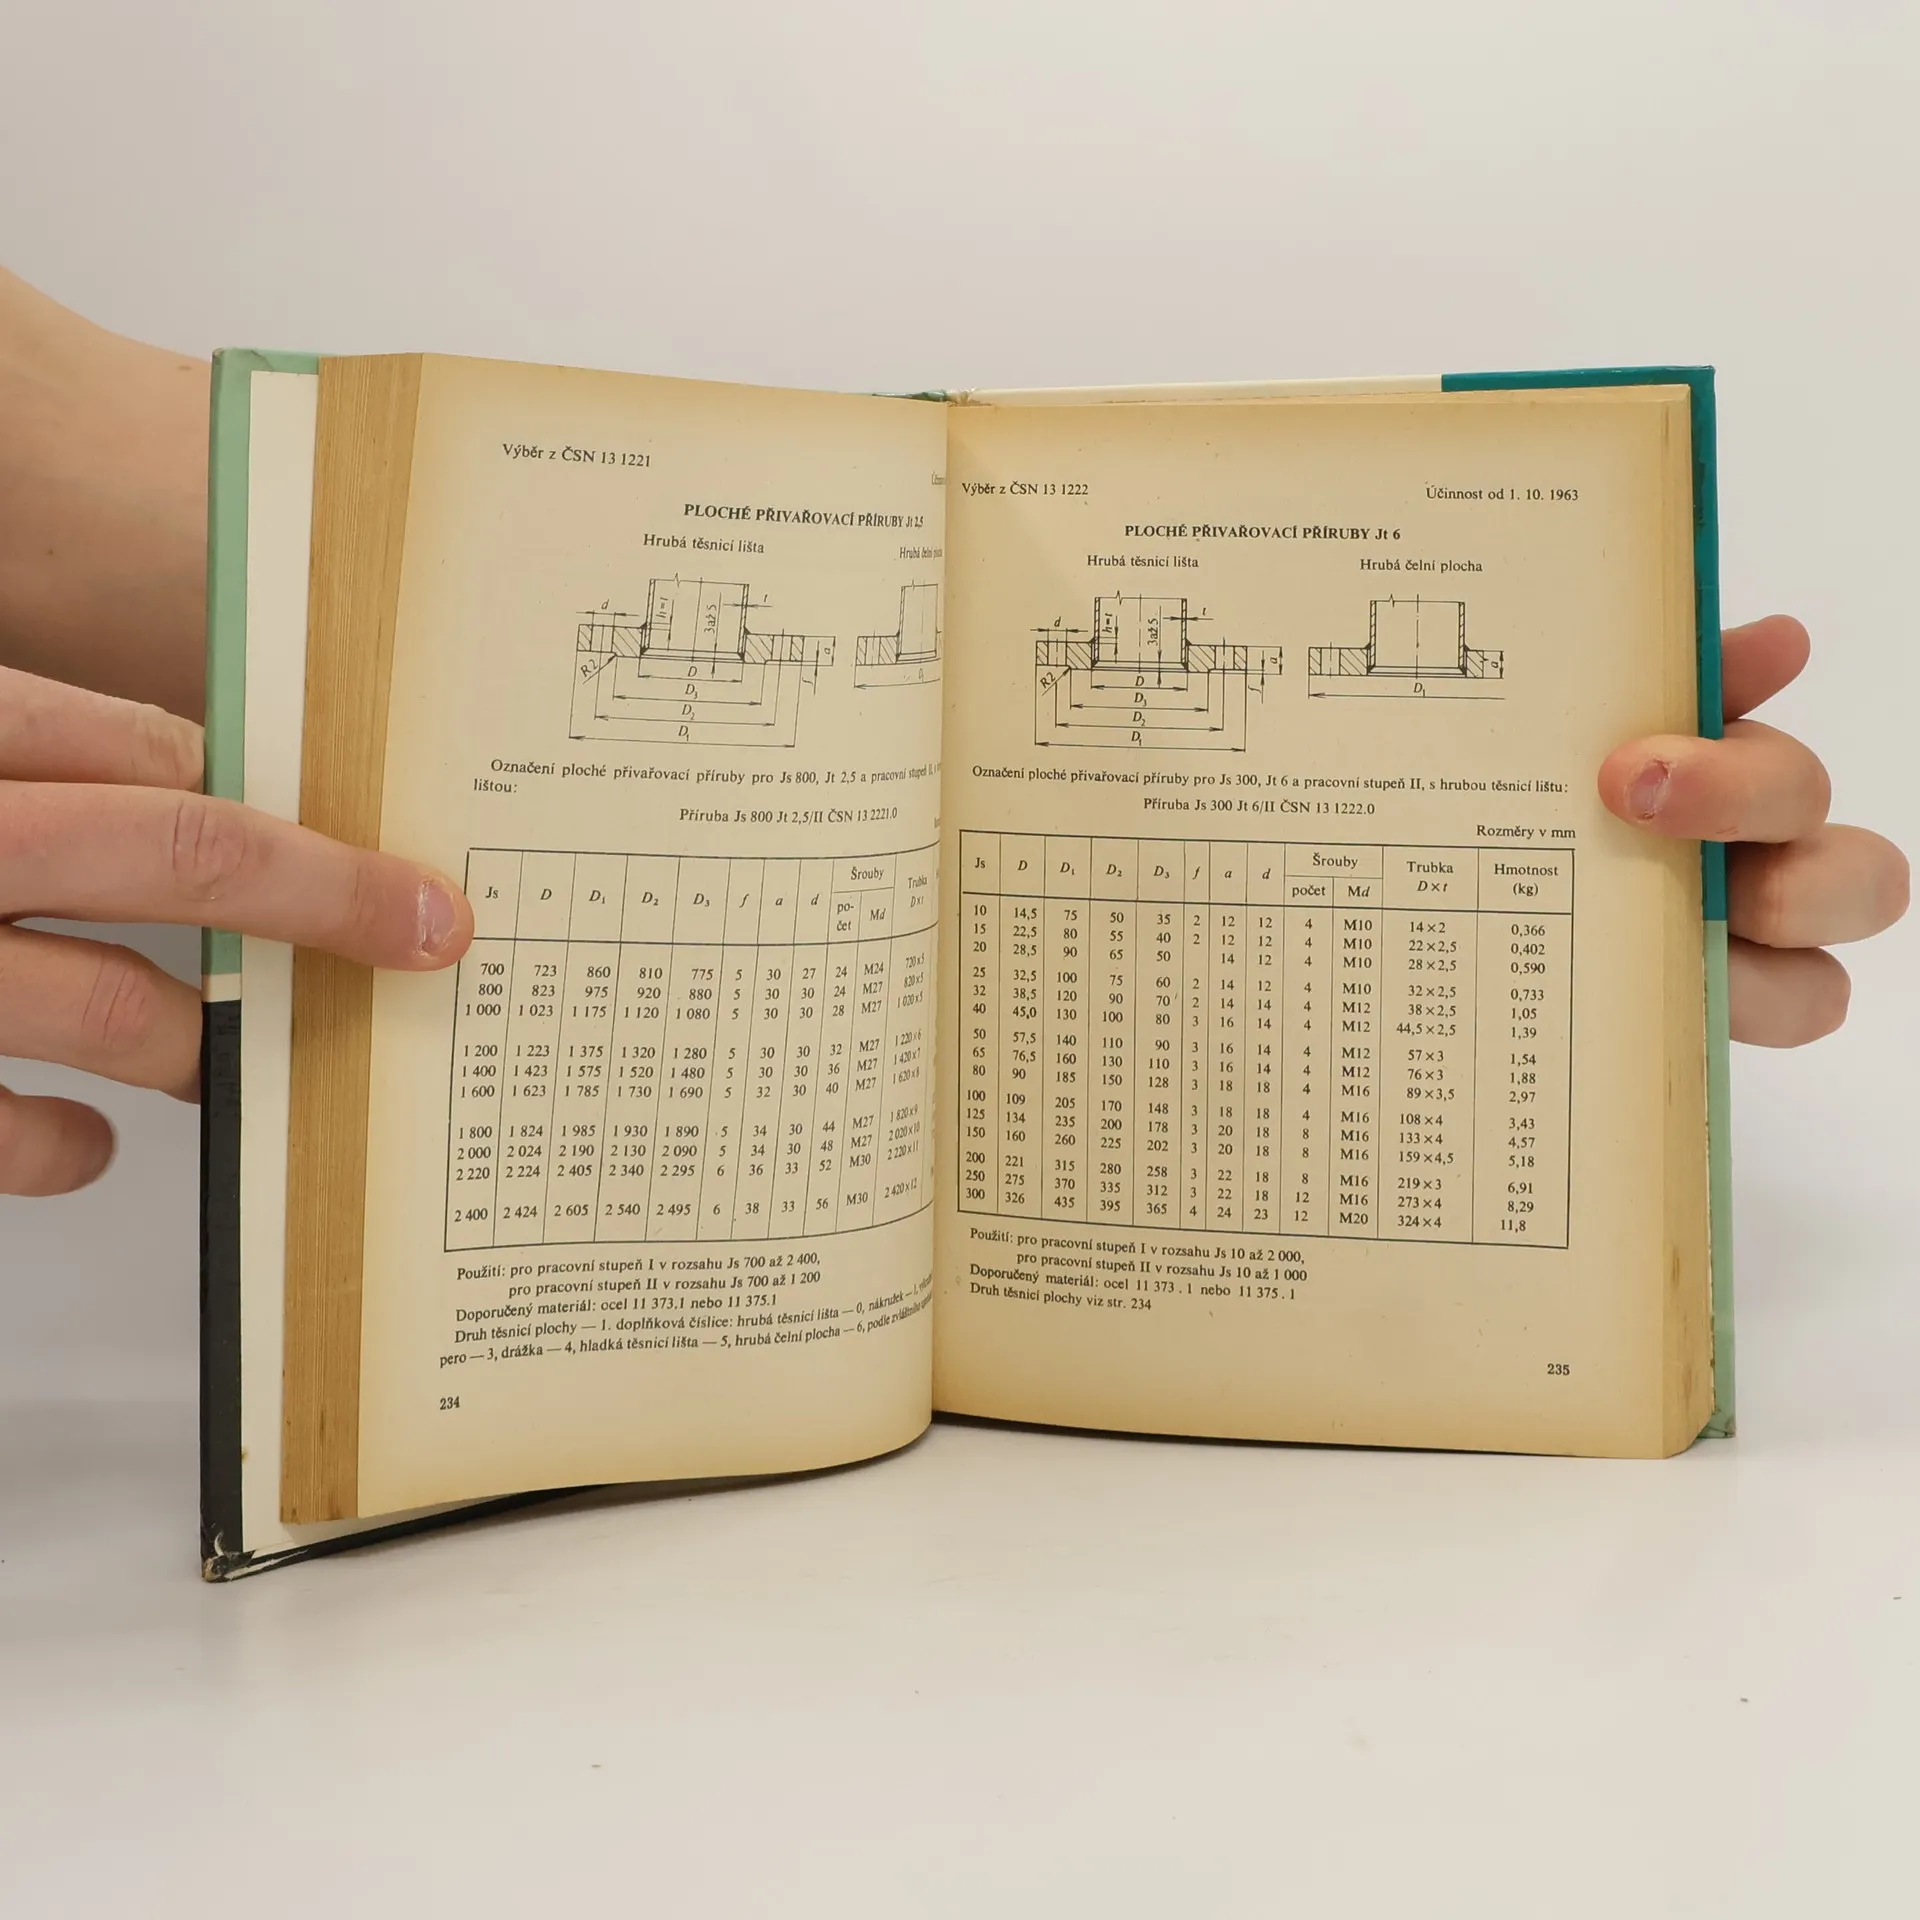 Výběr z ČSN 13 1221
PLOCHÉ PŘIVAŘOVACÍ PŘÍRUBY Jt 2,5
Hrubá těsnicí lišta
Hrubá čelní
d h=t 3až5 t
a
R2 D f
D₃
D₂
D₁
Označení ploché přivařovací příruby pro Js 800, Jt 2,5 a pracovní stupeň II,
lištou:
Příruba Js 800 Jt 2,5/II ČSN 13 2221.0
Js D D₁ D₂ D₃ f a d Šrouby Trubka
po- Md D×t
čet
700 723 860 810 775 5 30 27 24 M24 720×5
800 823 975 920 880 5 30 30 24 M27 820×5
1 000 1 023 1 175 1 120 1 080 5 30 30 28 M27 1 020×5
1 200 1 223 1 375 1 320 1 280 5 30 30 32 M27 1 220×6
1 400 1 423 1 575 1 520 1 480 5 30 30 36 M27 1 420×7
1 600 1 623 1 785 1 730 1 690 5 32 30 40 M27 1 620×8
1 800 1 824 1 985 1 930 1 890 5 34 30 44 M27 1 820×9
2 000 2 024 2 190 2 130 2 090 5 34 30 48 M27 2 020×10
2 220 2 224 2 405 2 340 2 295 6 36 33 52 M30 2 220×11
2 400 2 424 2 605 2 540 2 495 6 38 33 56 M30 2 420×12
Použití: pro pracovní stupeň I v rozsahu Js 700 až 2 400,
pro pracovní stupeň II v rozsahu Js 700 až 1 200
Doporučený materiál: ocel 11 373,1 nebo 11 375.1
Druh těsnicí plochy — 1. doplňková číslice: hrubá těsnicí lišta — 0, nákružek — 1,
pero — 3, drážka — 4, hladká těsnicí lišta — 5, hrubá čelní plocha — 6, podle zvláštního
234
Výběr z ČSN 13 1222
Účinnost od 1. 10. 1963
PLOCHÉ PŘIVAŘOVACÍ PŘÍRUBY Jt 6
Hrubá těsnicí lišta
Hrubá čelní plocha
d h=t 3až5 t
a a
R2 D f D₁
D₃
D₂
D₁
Označení ploché přivařovací příruby pro Js 300, Jt 6 a pracovní stupeň II, s hrubou těsnicí lištu:
Příruba Js 300 Jt 6/II ČSN 13 1222.0
Rozměry v mm
Js D D₁ D₂ D₃ f a d Šrouby Trubka Hmotnost
počet Md D×t (kg)
10 14,5 75 50 35 2 12 12 4 M10 14×2 0,366
15 22,5 80 55 40 2 12 12 4 M10 22×2,5 0,402
20 28,5 90 65 50 14 12 4 M10 28×2,5 0,590
25 32,5 100 75 60 2 14 12 4 M10 32×2,5 0,733
32 38,5 120 90 70 2 14 14 4 M12 38×2,5 1,05
40 45,0 130 100 80 3 16 14 4 M12 44,5×2,5 1,39
50 57,5 140 110 90 3 16 14 4 M12 57×3 1,54
65 76,5 160 130 110 3 16 14 4 M12 76×3 1,88
80 90 185 150 128 3 18 18 4 M16 89×3,5 2,97
100 109 205 170 148 3 18 18 4 M16 108×4 3,43
125 134 235 200 178 3 20 18 8 M16 133×4 4,57
150 160 260 225 202 3 20 18 8 M16 159×4,5 5,18
200 221 315 280 258 3 22 18 8 M16 219×3 6,91
250 275 370 335 312 3 22 18 12 M16 273×4 8,29
300 326 435 395 365 4 24 23 12 M20 324×4 11,8
Použití: pro pracovní stupeň I v rozsahu Js 10 až 2 000,
pro pracovní stupeň II v rozsahu Js 10 až 1 000
Doporučený materiál: ocel 11 373 . 1 nebo 11 375 . 1
Druh těsnicí plochy viz str. 234
235